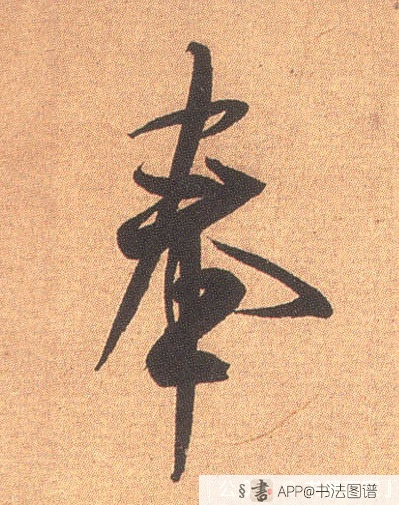 奉
§書 APP@书法图谱